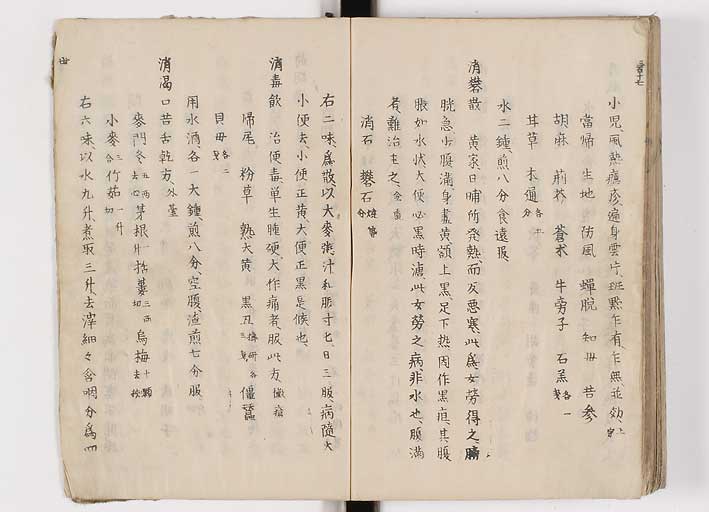 小児風熱癮疹遍身雲片斑點乍有乍無並効
當帰 生地 防風 蟬脱 知母 苦參
胡麻 荊芥 蒼术 牛旁子 石羔各一
甘草 木通各五分
水二鐘煎八分食遠服
消礬散 黄家日晡所発熱而反悪寒此為女勞得之膀
胱急少腹満身盡黄額上黒足下熱因作黒疸其腹
脹如水状大便必黒時溏此女勞之病非水也腹満
者難治主之
消石 礬石焼等分
右二味為散以大麥粥汁和服寸匕日三服病隨大
小便去小便正黄大便正黒是候也
消毒飲 治便毒単生腫硬大作痛者服此方
帰尾 粉草 熟大黄 黒丑 僵蚕
貝母各二
用水酒各一大鐘煎八分空腹渣煎七分服
消渇口苦舌乾方外臺
麥門冬五両去心 茅根一升 括蔞三両切 烏梅十顆去核
小麥三合 竹茹一升切
右六味以水九升煮取三升去滓細々含咽分為四